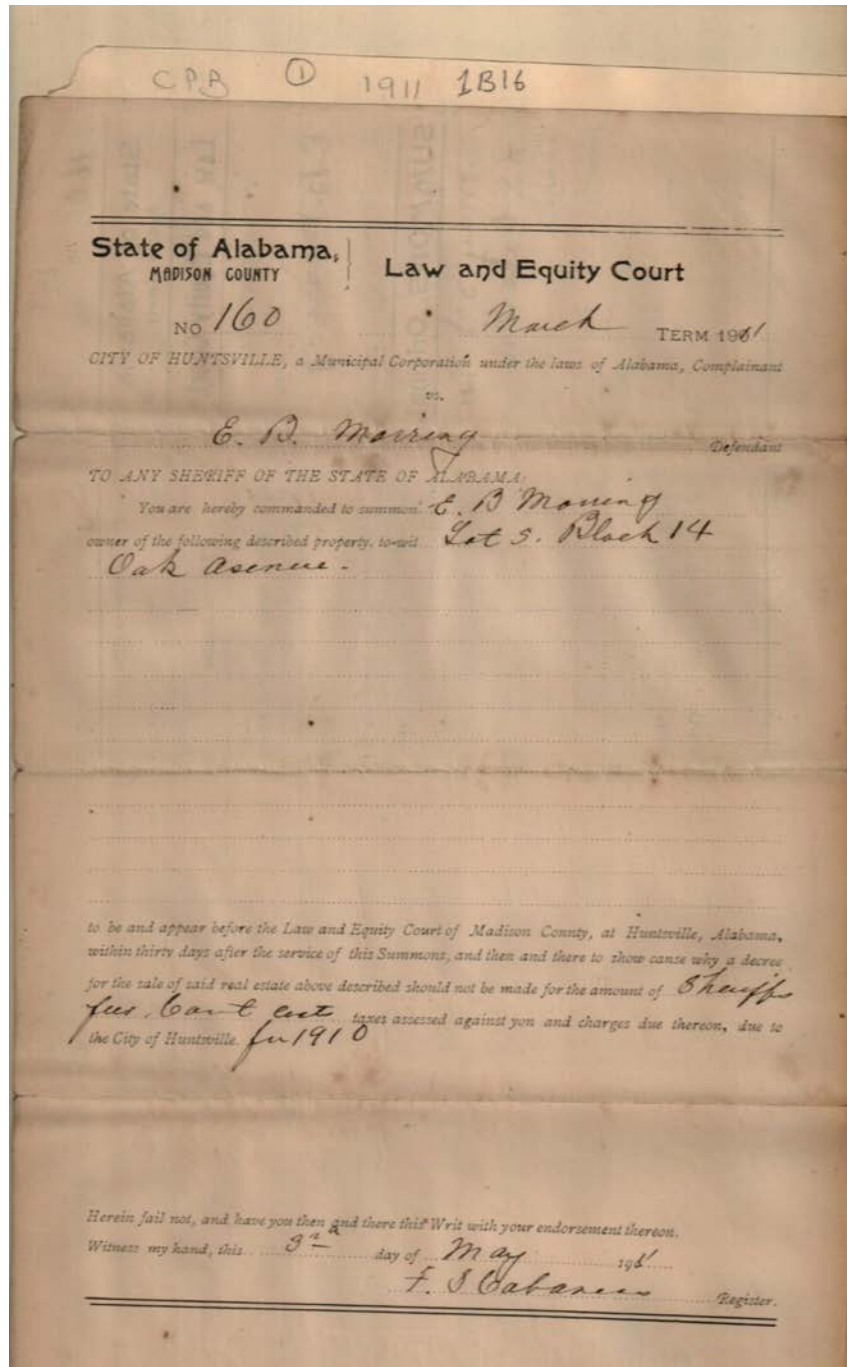 CPB ① 1911 1B16
State of Alabama, Law and Equity Court
MADISON COUNTY
NO 160 March TERM 1911
CITY OF HUNTSVILLE, a Municipal Corporation under the laws of Alabama, Complainant
vs.
E. B. Morring Defendant
TO ANY SHERIFF OF THE STATE OF ALABAMA:
You are hereby commanded to summon E. B Morring
owner of the following described property, to-wit Lot 5. Block 14
Oak Avenue.
to be and appear before the Law and Equity Court of Madison County, at Huntsville, Alabama,
within thirty days after the service of this Summons, and then and there to show cause why a decree
for the sale of said real estate above described should not be made for the amount of Sheriffs
fees, Court cost taxes assessed against you and charges due thereon, due to
the City of Huntsville. for 1910
Herein fail not, and have you then and there this Writ with your endorsement thereon.
Witness my hand, this 3rd day of May 1911
F. S Cabaness Register.